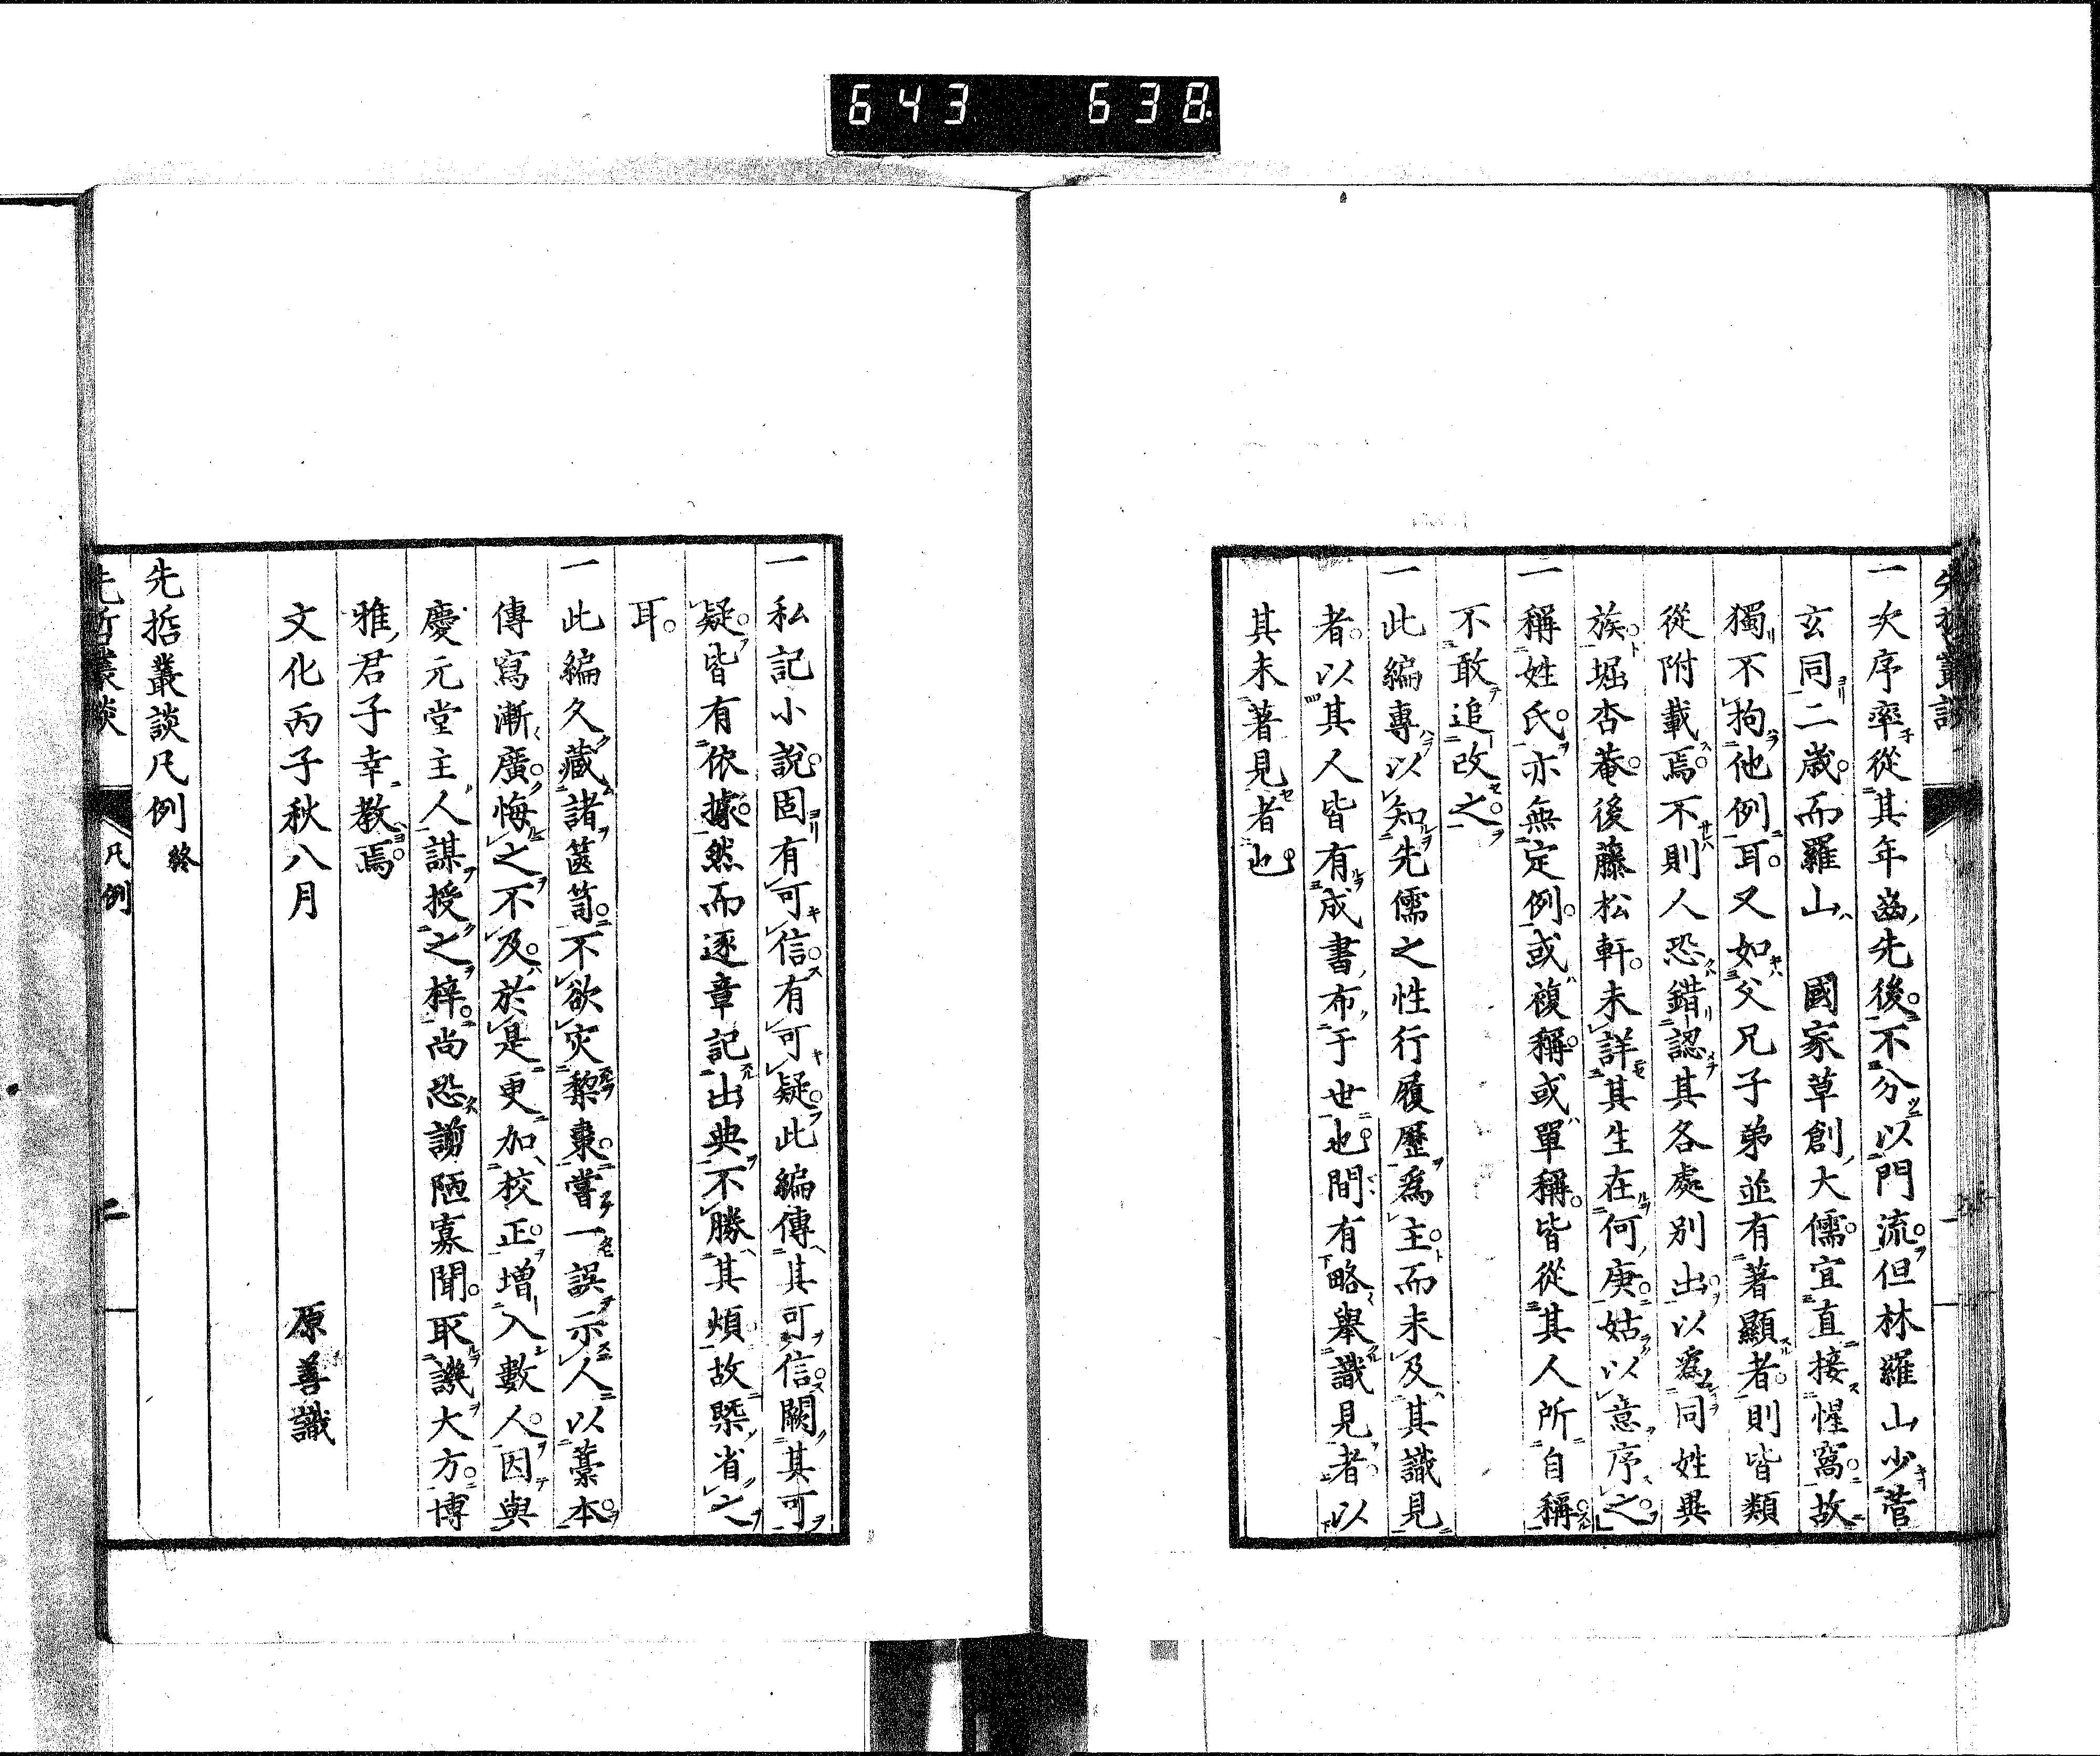 643 638
一次序率從其年齒先後不分以門流但林羅山少菅
玄同二歲而羅山 國家草創大儒宜直接惺窩故
獨不拘他例耳又如父兄子弟並有著顯者則皆類
從附載焉不則人恐錯認其各處別出以爲同姓異
族堀杏菴後藤松軒未詳其生在何庚姑以意序之
一稱姓氏亦無定例或複稱或單稱皆從其人所自稱
不敢追改之
一此編專以知先儒之性行履歷爲主而未及其識見
者以其人皆有成書布于世也間有略舉識見者以
其未著見者也
一私記小說固有可信有可疑此編傳其可信闕其可
疑皆有依據然而逐章記出典不勝其煩故槩省之
耳
一此編久藏諸篋笥不欲灾棃棗嘗一誤示人以藁本
傳寫漸廣悔之不及於是更加校正增入數人因與
慶元堂主人謀授之梓尚恐謭陋寡聞取譏大方博
雅君子幸教焉
文化丙子秋八月 原善識
先哲叢談凡例終
先哲叢談 凡例 二